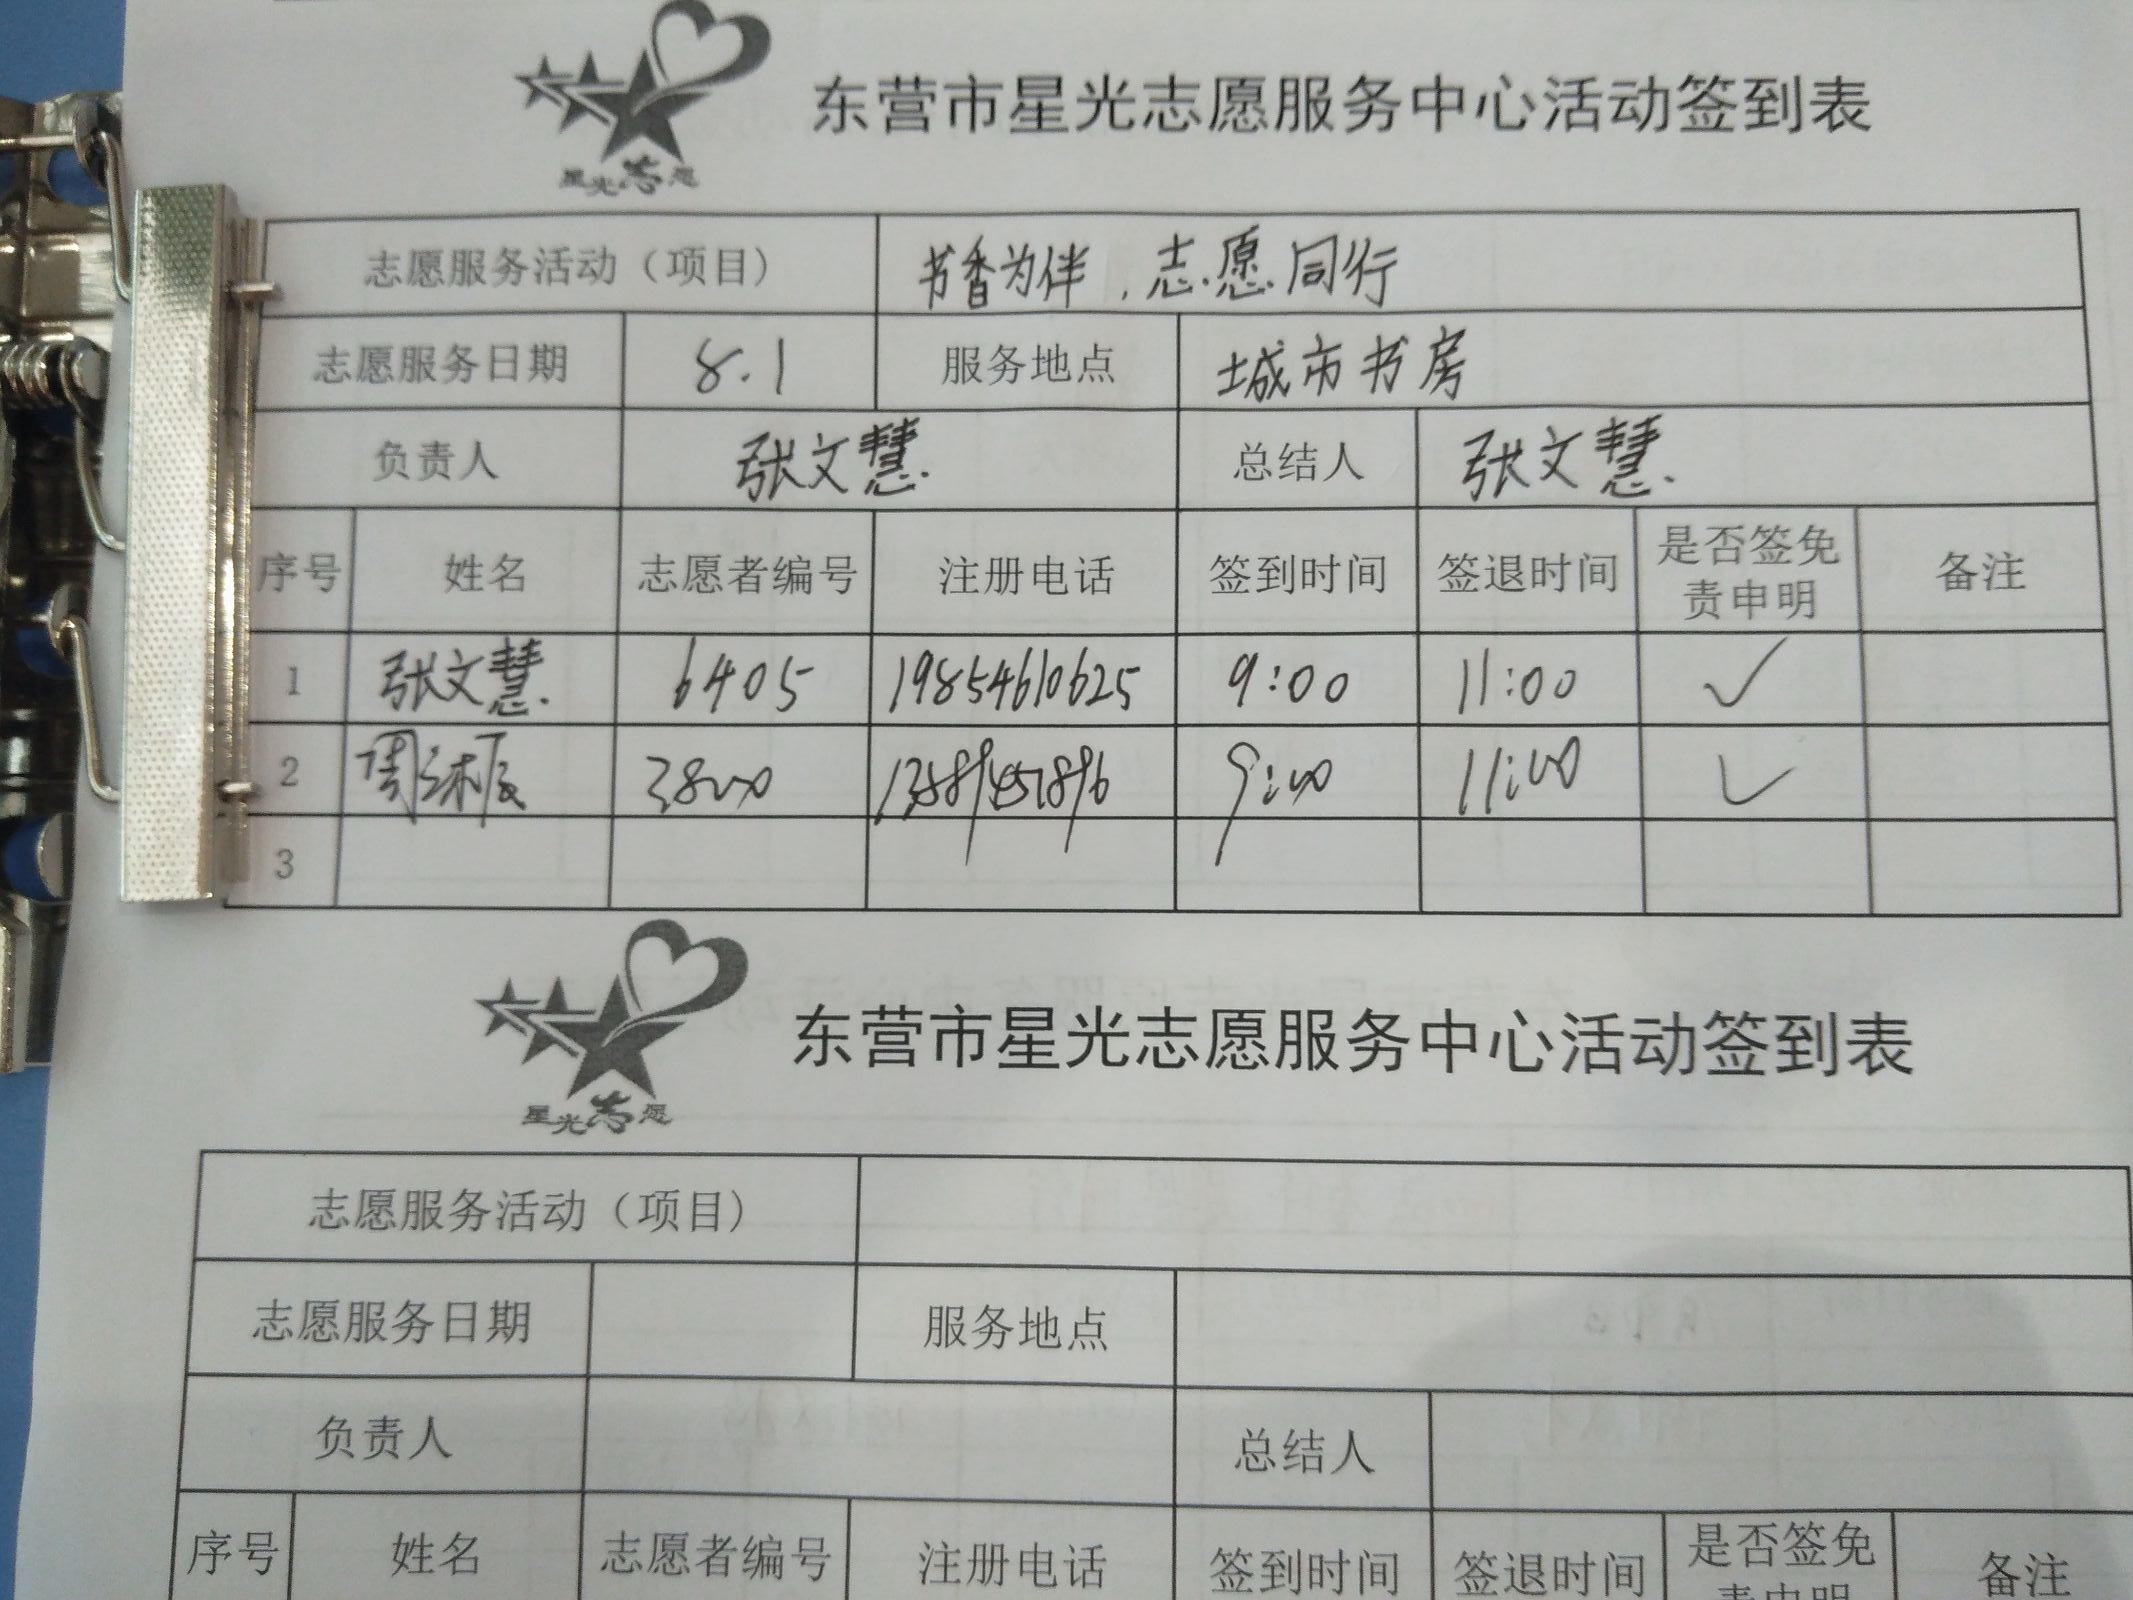 星光志愿
东营市星光志愿服务中心活动签到表
志愿服务活动（项目） 书香为伴，志愿同行
志愿服务日期 8.1 服务地点 城市书房
负责人 张文慧 总结人 张文慧
序号 姓名 志愿者编号 注册电话 签到时间 签退时间 是否签免责申明 备注
1 张文慧 6405 19854610625 9:00 11:00 ✓
2 周 3800 9:00 11:00 ✓
3
星光志愿
东营市星光志愿服务中心活动签到表
志愿服务活动（项目）
志愿服务日期 服务地点
负责人 总结人
序号 姓名 志愿者编号 注册电话 签到时间 签退时间 是否签免责申明 备注